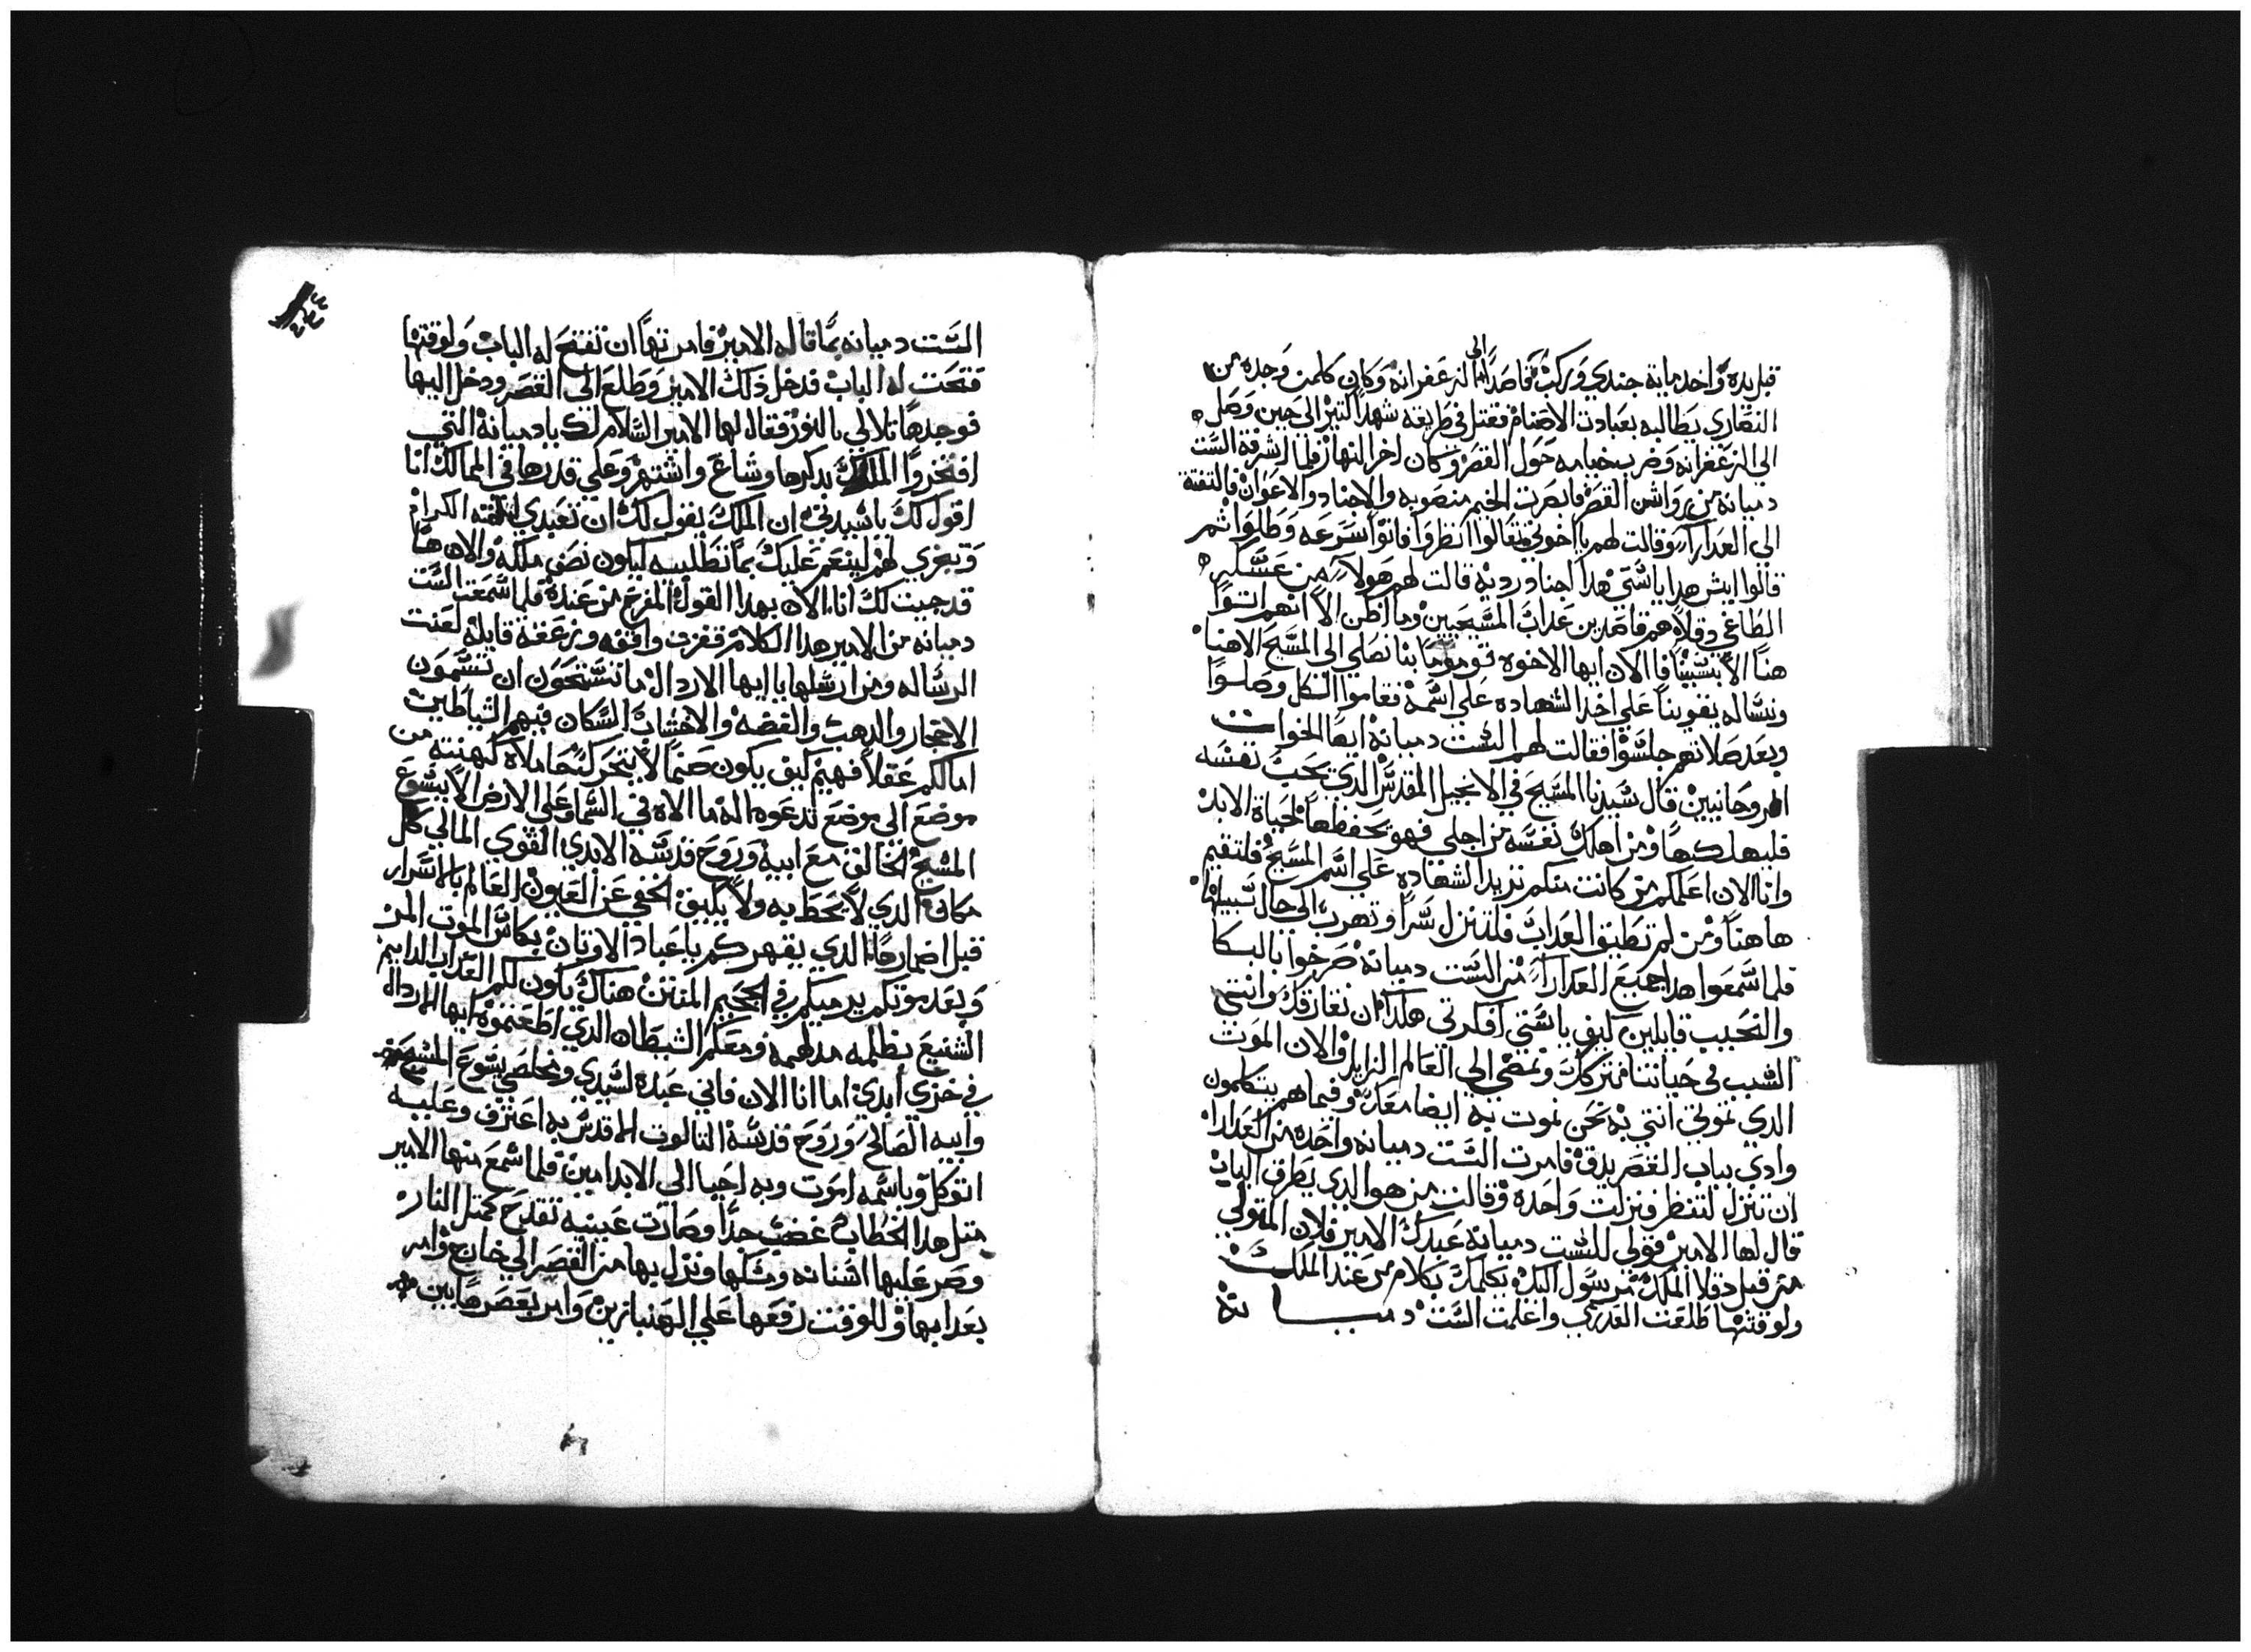 قبل يده واخد ماية جندي وركب قاصدا الي الزعفرانه وكان كلمن وجده من
النصاري يطالبه بعبادت الاصنام فقتل في طريقه شهدا كتير الي حين وصل
الي الزعفرانه وضرب خيامه حول القصر وكان اخر النهار فلما اشرفة الست
دميانه من رواشن القصر فابصرت الخيم منصوبه والاجناد والاعوان فالتفتة
الي العدارا وقالت لهم يا اخوتي تعالوا انظروا فاتوا بسرعه وطلوا ثم
قالوا ايش هدا يا ستي هدا اجناد رديه قالت لهم هولاء من عسكر
الطاغي دقلاه هم قاصدين عداب المسيحيين وما اظن الا انهم اتوا
هنا الا بسببنا فا الان ايها الاخوه قوموا بنا نصلي الي المسيح الاهنا
ونساله يقوينا علي اخد الشهاده علي اسمه فقاموا الكل وصلوا
وبعد صلاتهم جلسوا فقالت لهم الست دميانه ايها الاخوات
الروحانيين قال سيدنا المسيح في الانجيل المقدس الدي يحب نفسه
فليهلكها ومن اهلك نفسه من اجلي فهو يحفظها لحياة الابد
وانا الان اعلمكم من كانت منكم تريد الشهاده علي اسم المسيح فلتقيم
هاهنا ومن لم تطيق العداب فلتنزل سرا وتهرب الي حال سبيلها
فلما سمعوا هدا جميع العدارا من الست دميانه صرخوا بالبكا
والنحيب قايلين كيف يا ستي افكرتي هكدا ان نفارقك وانتي
السبب في حياتنا فنتركك ونمضي الي العالم الزايل والان الموت
الدي تموتي انتي به نحن نموت به ايضا معك وفيما هم يتكلمون
وادي بباب القصر يدق فامرت الست دميانه واحده من العدارا
ان تنزل لتنظر فنزلت واحده وقالت من هو الدي يطرق الباب
قال لها الامير قولي للست دميانه عبدك الامير فلان المتولي
من قبل دقلا الملك مرسول اليك يكلمك بكلام من عند الملك
ولوقتها طلعت العدري واعلمت الست دميانة
الست دميانه بما قاله الامير فامرتها ان تفتح له الباب ولوقتها
فتحت له الباب فدخل ذلك الامير وطلع الي القصر ودخل اليها
فوجدها تلالي بالنور فقال لها الامير السلام لك يا دميانة التي
افتخروا الملوك بدكرها وشاع واشتهر وعلي قدرها في الممالك انا
اقول لك يا سيدتي ان الملك يقول لك ان تعبدي الهته الكرام
وتبخري لهم لينعم عليك بما تطلبيه ليكون نصف ملكه والان ها
قد جيت لك انا الان بهدا القول المفرح من عنده فلما سمعت الست
دميانه من الامير هدا الكلام قفزت واقفه وزعقة قايله لعنت
الرساله ومن ارسلها يا ايها الاردال ما تستحون ان تسمون
الاحجار والدهب والفضه والاخشاب السكان فيهم الشياطين
اما لكم عقلا فهيم كيف يكون صنما لا يتحرك تحاملاه كهنته من
موضع الي موضع تدعوه الة ما الاه في السما وعلي الارض الا يسوع
المسيح الخالق مع ابيه وروح قدسه الابدي القوي المالي كل
مكان الدي لا يحط به ولا يكيف الخفي عن العيون العالم بالاسرار
قبل اضمارها الدي يقهركم يا عباد الاوتان بكاس الموت المر
وبعد موتكم يرميكم في الجحيم المنتن هناك يكون لكم العداب الدايم
الشنيع بظلمه مدلهمه ومعكم الشيطان الدي اطعتموه ايها الاردال
في خزي ابدي اما انا الان فاني عبدة لسيدي ومخلصي يسوع المسيح
وابيه الصالح وروح قدسه التالوت المقدس به اعترف وعليه
اتوكل وباسمه اموت وبه احيا الي الابد امين فلما سمع منها الامير
متل هدا الخطاب غضب جدا وصارت عينيه تقدح كمتل النار
وصر عليها اسنانه ومسكها ونزل بها من القصر الي خارج وامر
بعدابها وللوقت رفعها علي الهنبازين وامر بعصرها بين